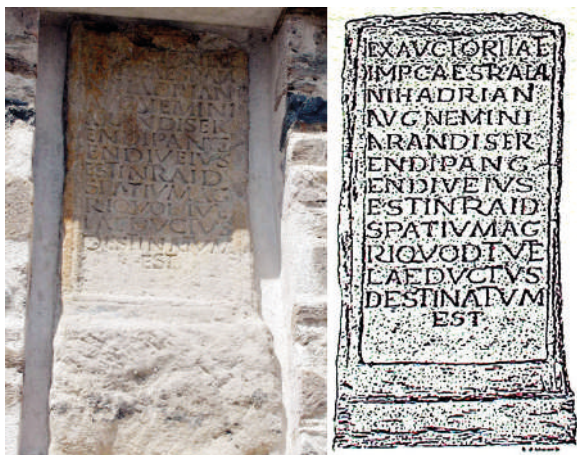 ADRIAN
NEMINI
ENDIVEIVS
ESTINRAID
SPATIVM
DESTINATVM
EST
EXAVCTORITAE
IMPCAESTRAIA
NIHADRIAN
AVGNEMINI
ARANDISER
ENDIPANG
ENDIVEIVS
ESTINRAID
SPATIVMAG
RIQVODTVE
LAEDVCTVS
DESTINATVM
EST